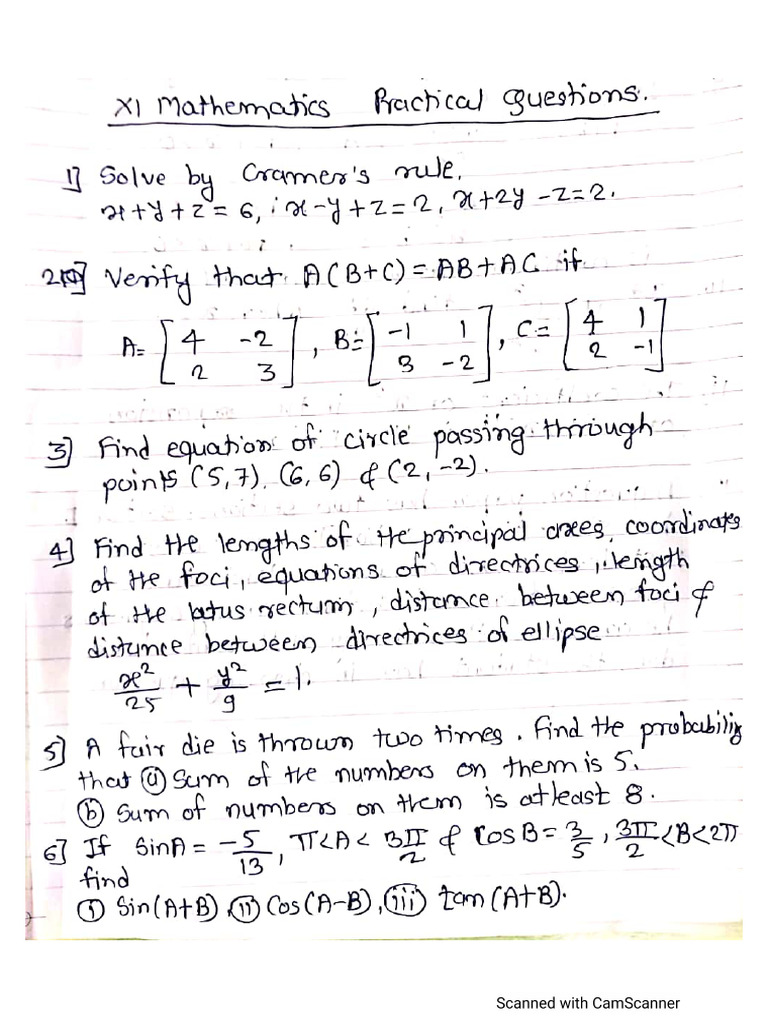 XI Mathematics Practical Questions.
1] Solve by Cramer's rule.
x+y+z=6, x-y+z=2, x+2y-z=2.
2] Verify that A(B+C)=AB+AC if
A=[4 -2], B=[-1 1], C=[4 1]
[2 3] [3 -2] [2 -1]
3] Find equation of circle passing through
points (5,7), (6,6) & (2,-2).
4] Find the lengths of the principal axes, coordinates
of the foci, equations of directrices, length
of the latus rectum, distance between foci &
distance between directrices of ellipse
x²/25 + y²/9 = 1.
5] A fair die is thrown two times. Find the probability
that ⓐ Sum of the numbers on them is 5.
ⓑ Sum of numbers on them is atleast 8.
6] If SinA = -5/13, π<A<3π/2 & CosB=3/5, 3π/2<B<2π
find
ⓘ Sin(A+B), ⓘⓘ Cos(A-B), ⓘⓘⓘ tan(A+B).
Scanned with CamScanner